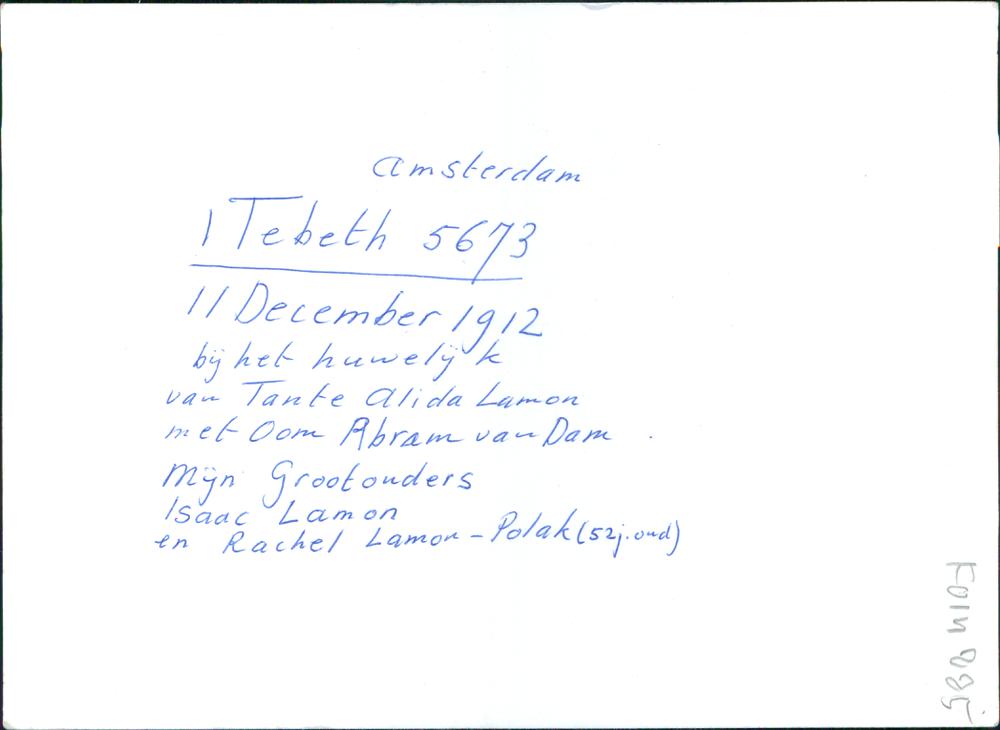 Amsterdam
1 Tebeth 5673
11 December 1912
bij het huwelijk
van Tante Alida Lamon
met Oom Abram van Dam.
Mijn Grootouders
Isaac Lamon
en Rachel Lamon-Polak (52j. oud)